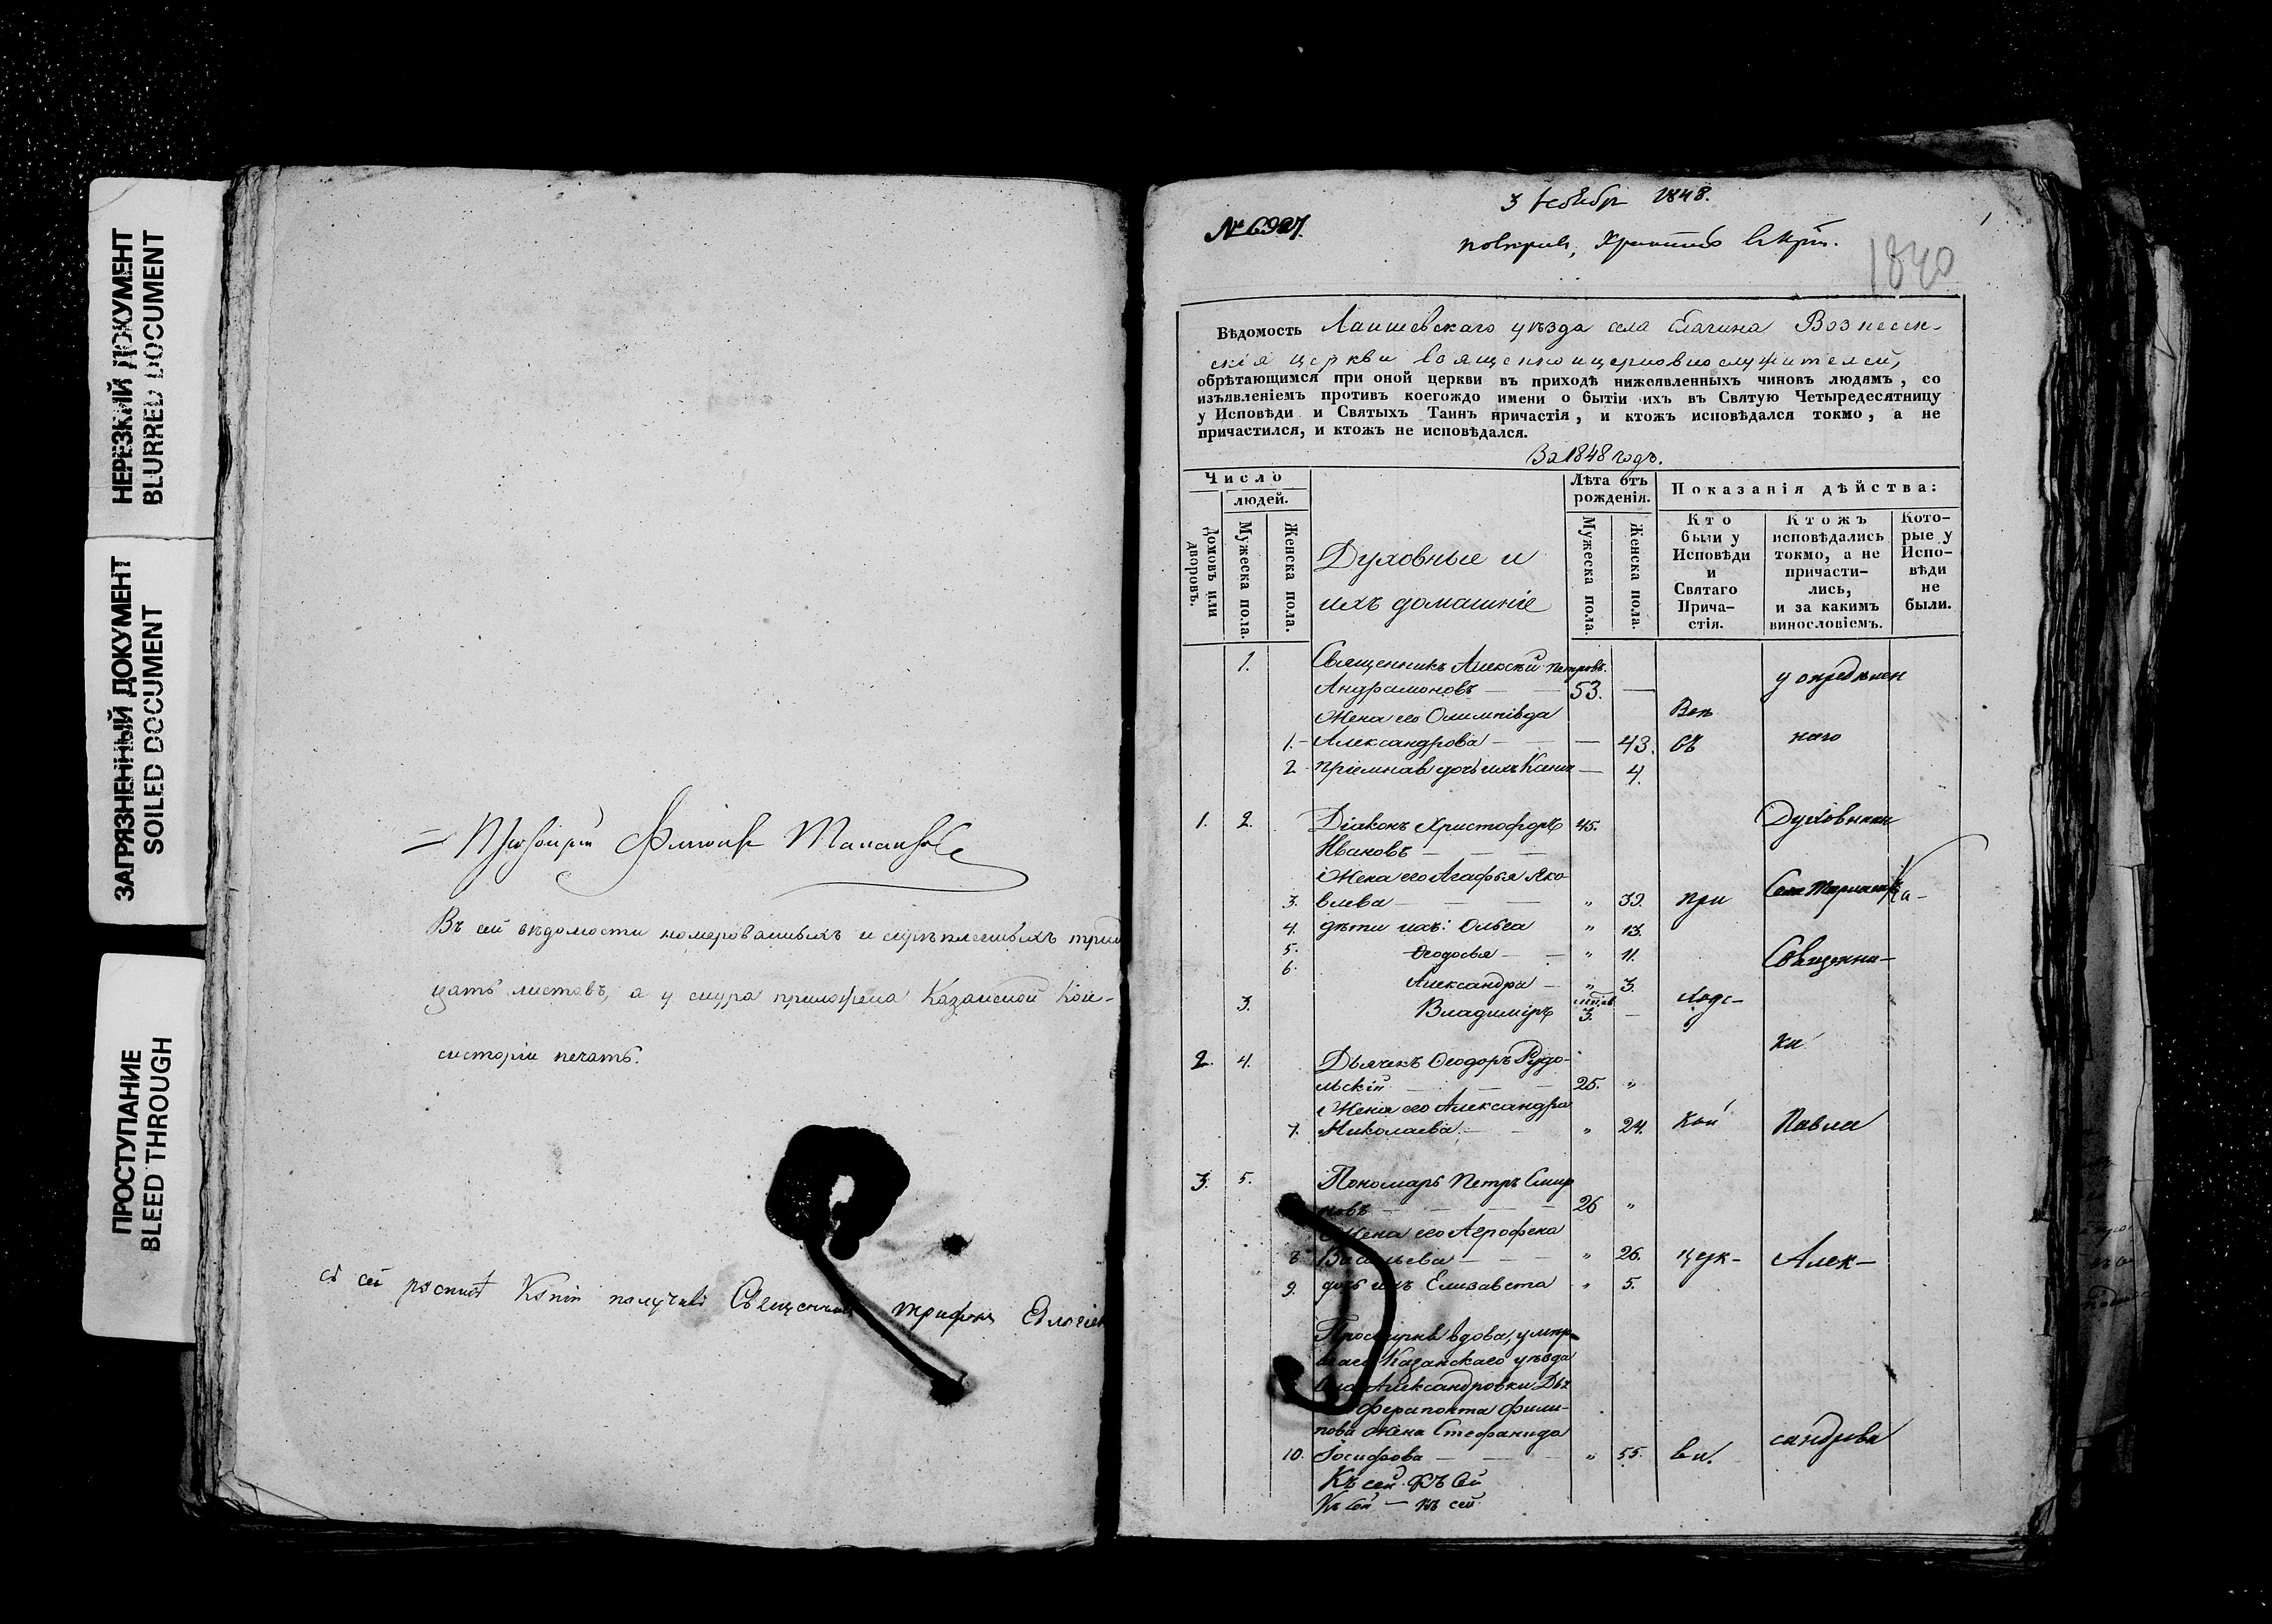 НЕРЕЗКИЙ ДОКУМЕНТ
BLURRED DOCUMENT
ЗАГРЯЗНЕННЫЙ ДОКУМЕНТ
SOILED DOCUMENT
ПРОСТУПАНИЕ
BLEED THROUGH
Въ сей вѣдомости номерованныхъ и скрѣпленныхъ трид
цать листовъ, а у снура приложена Казанской Кон-
систоріи печать.
съ сей Копіи получилъ Священникъ Трифонъ
1848.
№ 6927.
1840
1
Вѣдомость Лаишевскаго уѣзда села Вознесен-
скія церкви священноицерковнослужителей,
обрѣтающимся при оной церкви въ приходѣ нижеявленныхъ чиновъ людямъ, со
изъявленіемъ противъ коегождо имени о бытіи ихъ въ Святую Четыредесятницу
у Исповѣди и Святыхъ Таинъ причастія, и ктожъ исповѣдался токмо, а не
причастился, и ктожъ не исповѣдался.
За 1848 годъ.
Число
людей.
Домовъ или дворовъ.
Мужеска пола.
Женска пола.
Духовные и
ихъ домашніе
Лѣта отъ
рожденія.
Мужеска пола.
Женска пола.
Показанія дѣйства:
Кто
были у
Исповѣди
и
Святаго
Прича-
стія.
Ктожъ
исповѣдались
токмо, а не
причасти-
лись,
и за какимъ
винословіемъ.
Кото-
рые у
Испо-
вѣди
не
были.
1. Священникъ Алексѣй Петровъ
Андрамоновъ — 53. —
Жена его Олимпіада
1. Александрова — — 43.
2 пріемная дочь ихъ — 4.
1. 2. Діаконъ Христофоръ 45.
Ивановъ — Духовника
Жена его Агафья Яко-
3. влева — „ 39. при
4. дѣти ихъ: Ольга „ 13.
5. Ѳеодосья — „ 11. Священни-
6. Александра — „ 3.
3. Владиміръ 3. —
ка
2. 4. Дьячекъ Ѳеодоръ Рудо-
льскій — 25. „
Жена его Александра
7. Николаева — „ 24. Павла
3. 5. Пономарь Петръ Смир
новъ — 26 „
Жена его Агрофена
8 Васильева — „ 26. церк- Алек-
9. дочь ихъ Елизавета „ 5.
Просвирня вдова, умер-
шаго Казанскаго уѣзда
села Александровки
Ферапонта Фили-
пова жена Стефанида
10. Іосифова — „ 55. ви. сандрова
Къ сей Къ сей
Къ сей — къ сей